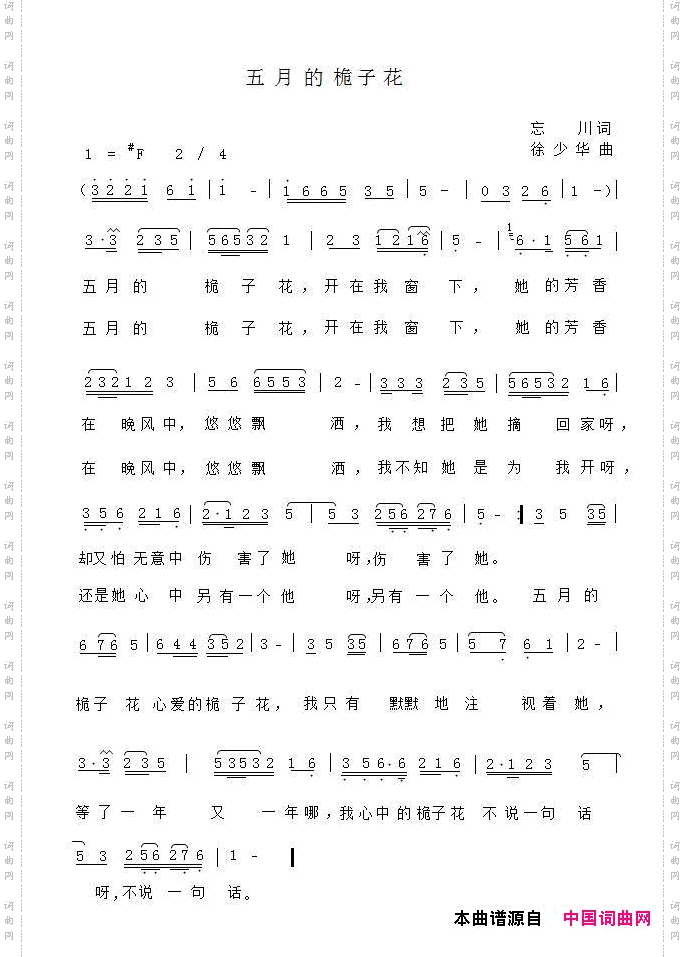 五月的桅子花
忘 川词
1 = #F 2 / 4
徐少华曲
（3 2 2 1 6 1 | 1 - | 1 6 6 5 3 5 | 5 - | 0 3 2 6 | 1 -）|
3·3 2 3 5 | 5 6 5 3 2 1 | 2 3 1 2 1 6 | 5 - | 1 6·1 5 6 1 |
五月的 桅子花，开在我窗下，她的芳香
五月的 桅子花，开在我窗下，她的芳香
2 3 2 1 2 3 | 5 6 6 5 5 3 | 2 - | 3 3 3 2 3 5 | 5 6 5 3 2 1 6 |
在 晚风中，悠悠飘 洒，我 想把她摘 回家呀，
在 晚风中，悠悠飘 洒，我不知她是为 我开呀，
3 5 6 2 1 6 | 2·1 2 3 5 | 5 3 2 5 6 2 7 6 | 5 - :| 3 5 3 5 |
却又怕无意中伤 害了她 呀，伤 害了她。
还是她心 中另有一个他 呀，另有一个他。 五月的
6 7 6 5 | 6 4 4 3 5 2 | 3 - | 3 5 3 5 | 6 7 6 5 | 5 7 6 1 | 2 - |
桅子 花心爱的桅子花，我只有 默默地注 视着她，
3·3 2 3 5 | 5 3 5 3 2 1 6 | 3 5 6·6 2 1 6 | 2·1 2 3 5 |
等了一年 又 一年哪，我心中的桅子花 不说一句 话
5 3 2 5 6 2 7 6 | 1 - |
呀，不说 一句 话。
本曲谱源自 中国词曲网
词曲网